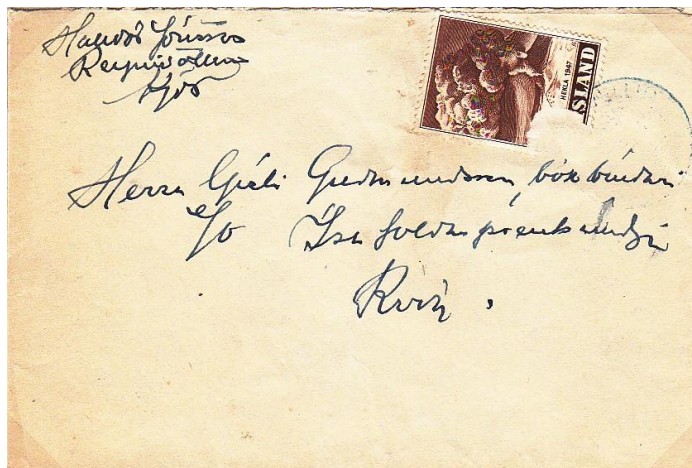 Halldór Jónsson
Reynivöllum
Kjós
HEKLA 1947
ÍSLAND
Herra Gísli Guðmundsson, bókbindari
c/o Ísafoldarprentsmiðju
Rvík.